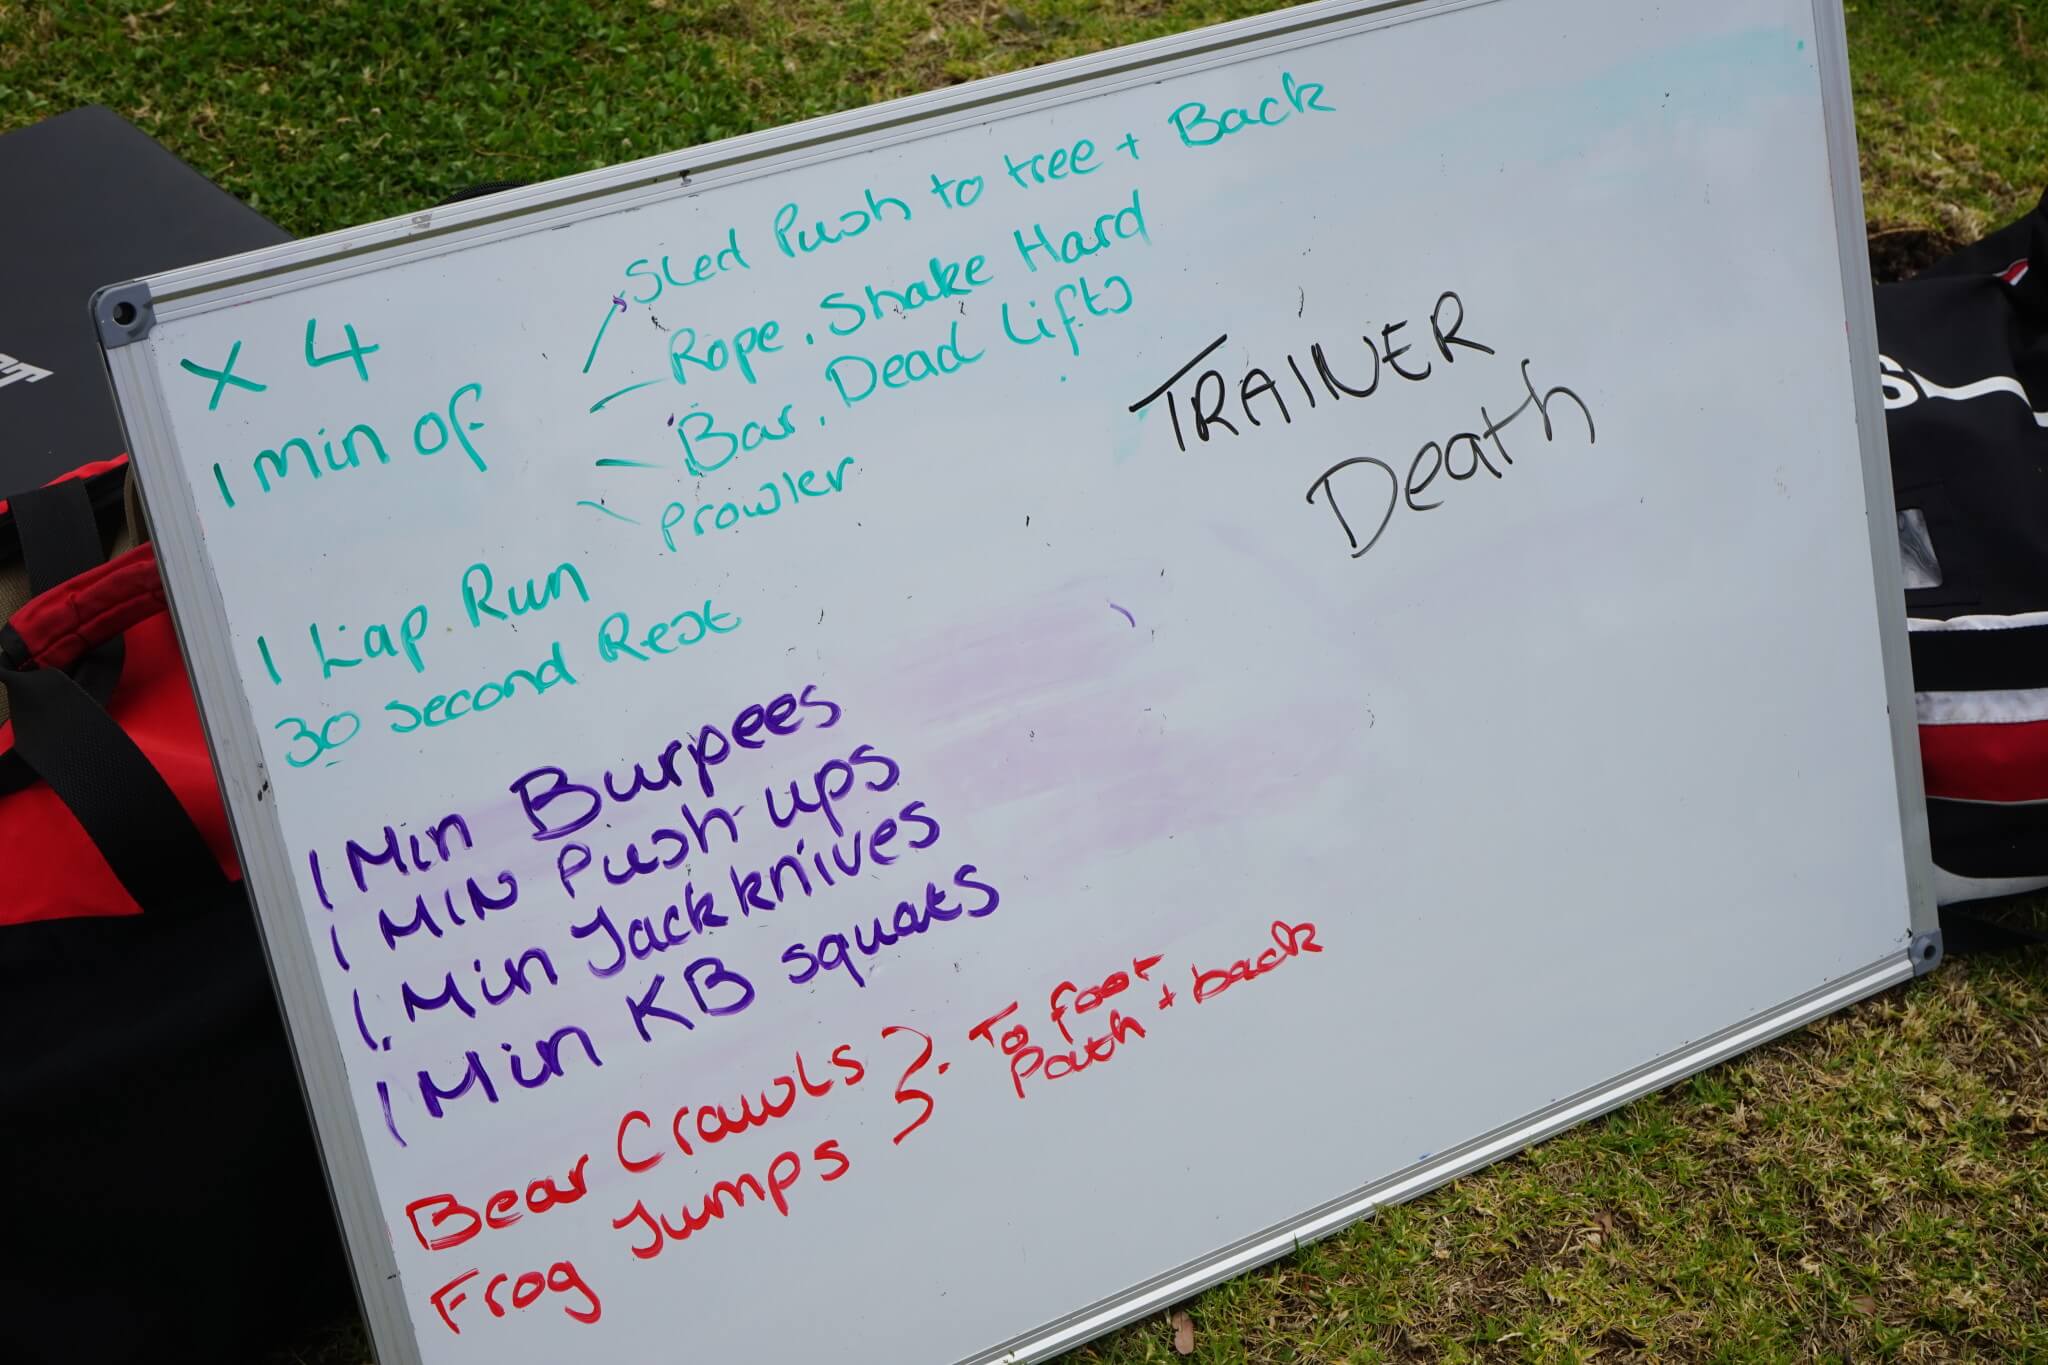 Sled Push to tree + Back
Rope, Shake Hard
Bar, Dead Lifts
Prowler
x 4
1 min of
1 Lap Run
30 second Rest
TRAINER
Death
1 Min Burpees
1 MIN Push-ups
1 Min Jackknives
1 Min KB squats
Bear Crawls
Frog Jumps
To foot
Path + back